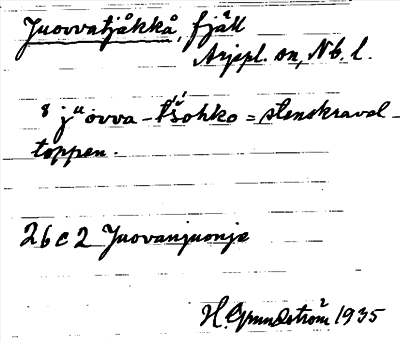 Juovvatjåkkå, fjäll
Arjepl. sn, Nb. l.
j u ovva - tšohko = stenskravel-
toppen.
26 c 2 Juovanjuonje
H. Grundström 1935